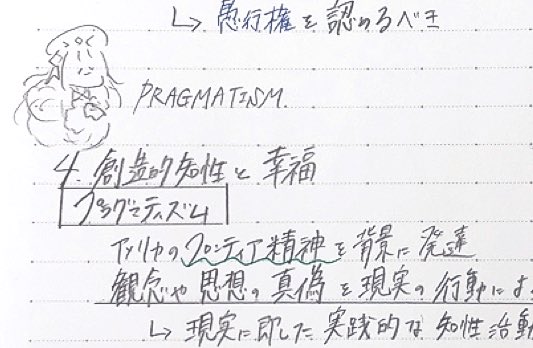 ↳ 愚行権を認めるべき
PRAGMATISM.
4. 創造的知性と幸福
プラグマティズム
アメリカのフロンティア精神を背景に発達
観念や思想の真偽を現実の行動によ
↳ 現実に即した実践的な知性活動